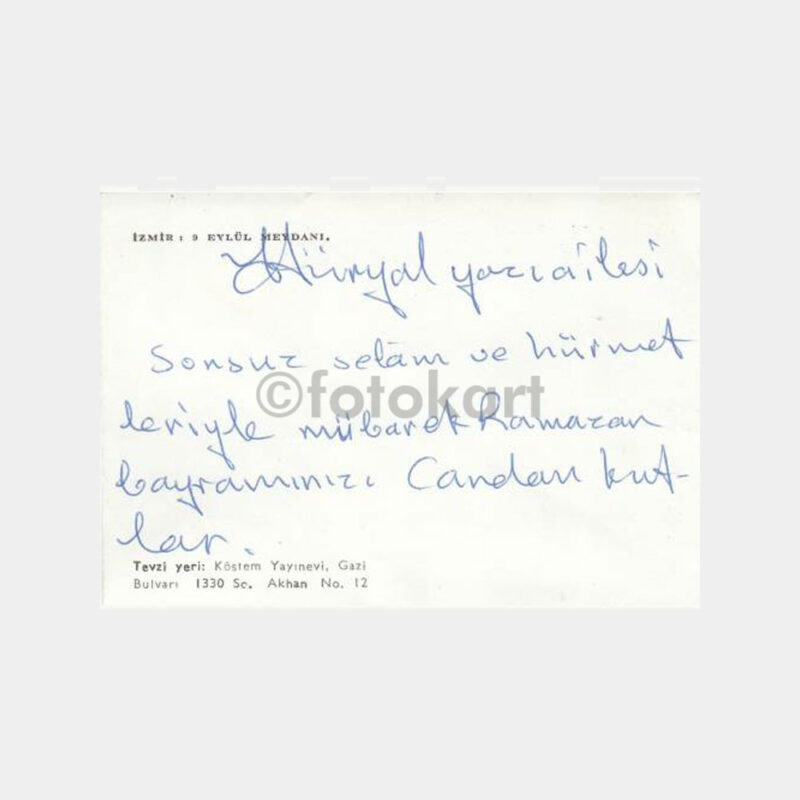 İZMİR : 9 EYLÜL MEYDANI.
Hüryal yazıcı ailesi
Sonsuz selâm ve hürmet
leriyle mübarek Ramazan
bayramınızı Candan kut-
lar.
©fotokart
Tevzi yeri: Köstem Yayınevi, Gazi
Bulvarı 1330 Sc. Akhan No. 12